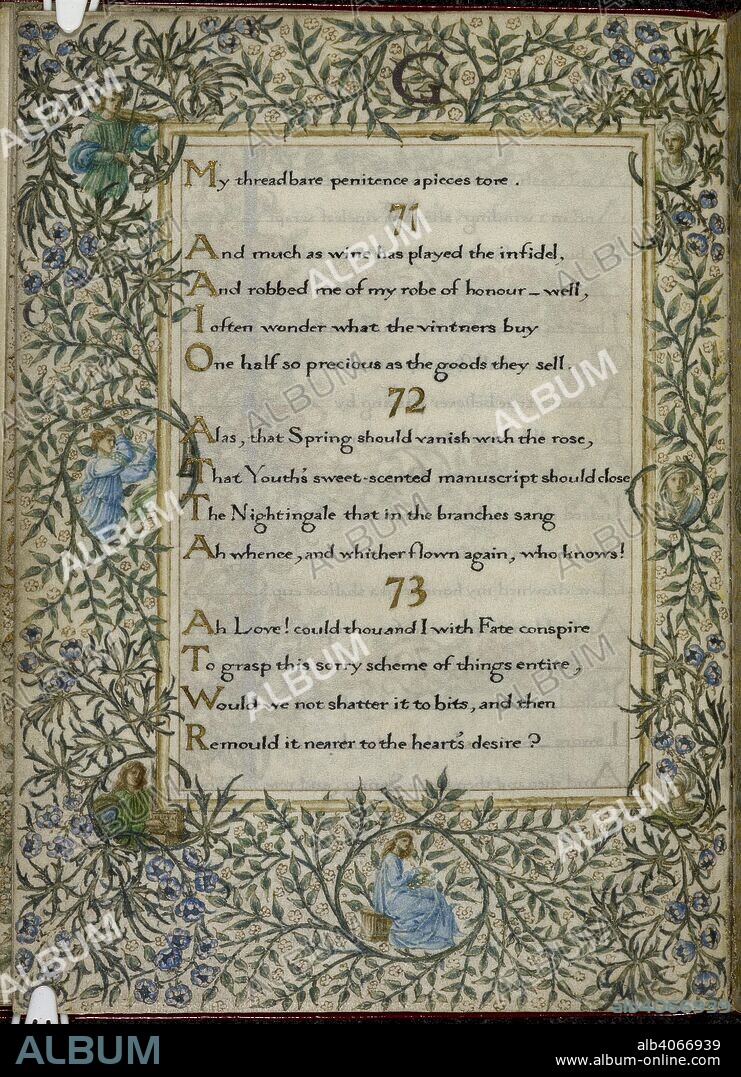 G
My threadbare penitence apieces tore.
71
And much as wine has played the infidel,
And robbed me of my robe of honour – well,
I often wonder what the vintners buy
One half so precious as the goods they sell.
72
Alas, that Spring should vanish with the rose,
That Youth's sweet-scented manuscript should close
The Nightingale that in the branches sang
Ah whence, and whither flown again, who knows!
73
Ah Love! could thou and I with Fate conspire
To grasp this sorry scheme of things entire,
Would we not shatter it to bits, and then
Remould it nearer to the heart's desire?
ALBUM
alb4066939
ALBUM
alb4066939
www.album-online.com